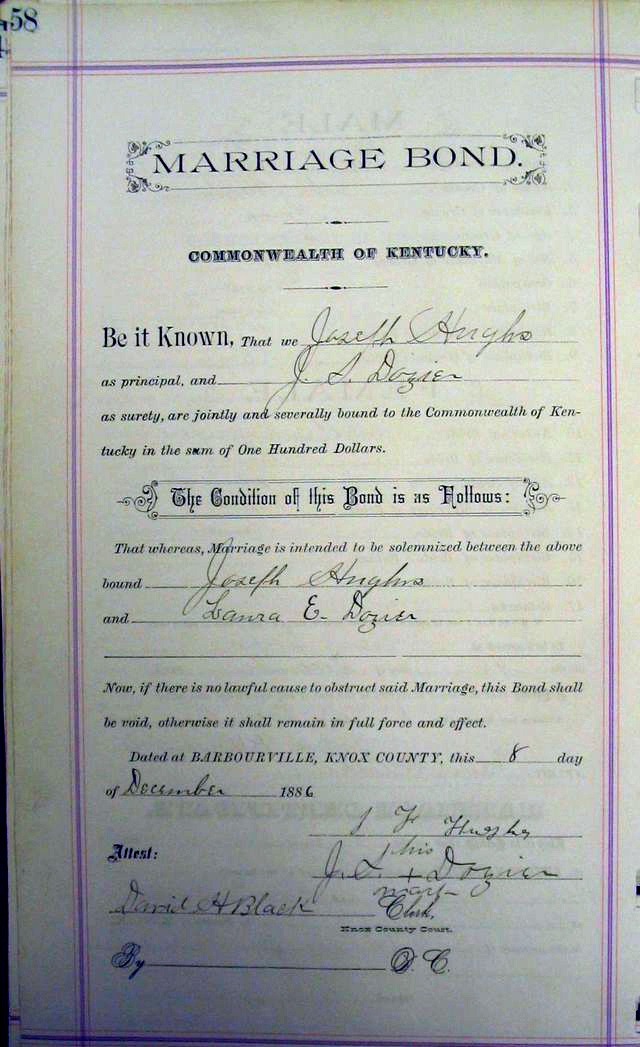 58
MARRIAGE BOND.
COMMONWEALTH OF KENTUCKY.
Be it Known, That we Joseph Hughs
as principal, and J. S. Dozier
as surety, are jointly and severally bound to the Commonwealth of Ken-
tucky in the sum of One Hundred Dollars.
The Condition of this Bond is as Follows:
That whereas, Marriage is intended to be solemnized between the above
bound Joseph Hughs
and Laura E. Dozier
Now, if there is no lawful cause to obstruct said Marriage, this Bond shall
be void, otherwise it shall remain in full force and effect.
Dated at BARBOURVILLE, KNOX COUNTY, this 8 day
of December 1886
J H Hughes
his
Attest:
J. S. + Dozier
mark
David H Black Clerk,
Knox County Court.
By D. C.